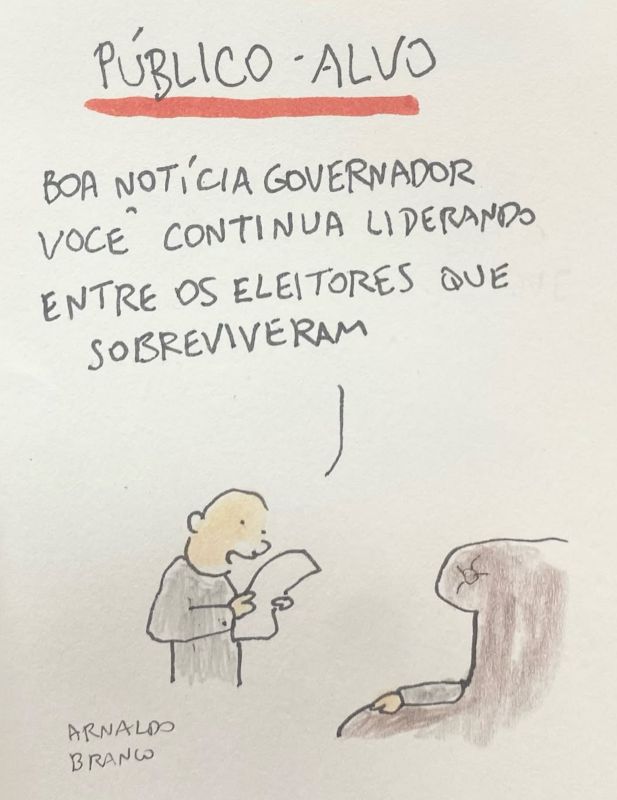 PÚBLICO - ALVO
BOA NOTÍCIA GOVERNADOR
VOCÊ CONTINUA LIDERANDO
ENTRE OS ELEITORES QUE
SOBREVIVERAM
ARNALDO
BRANCO